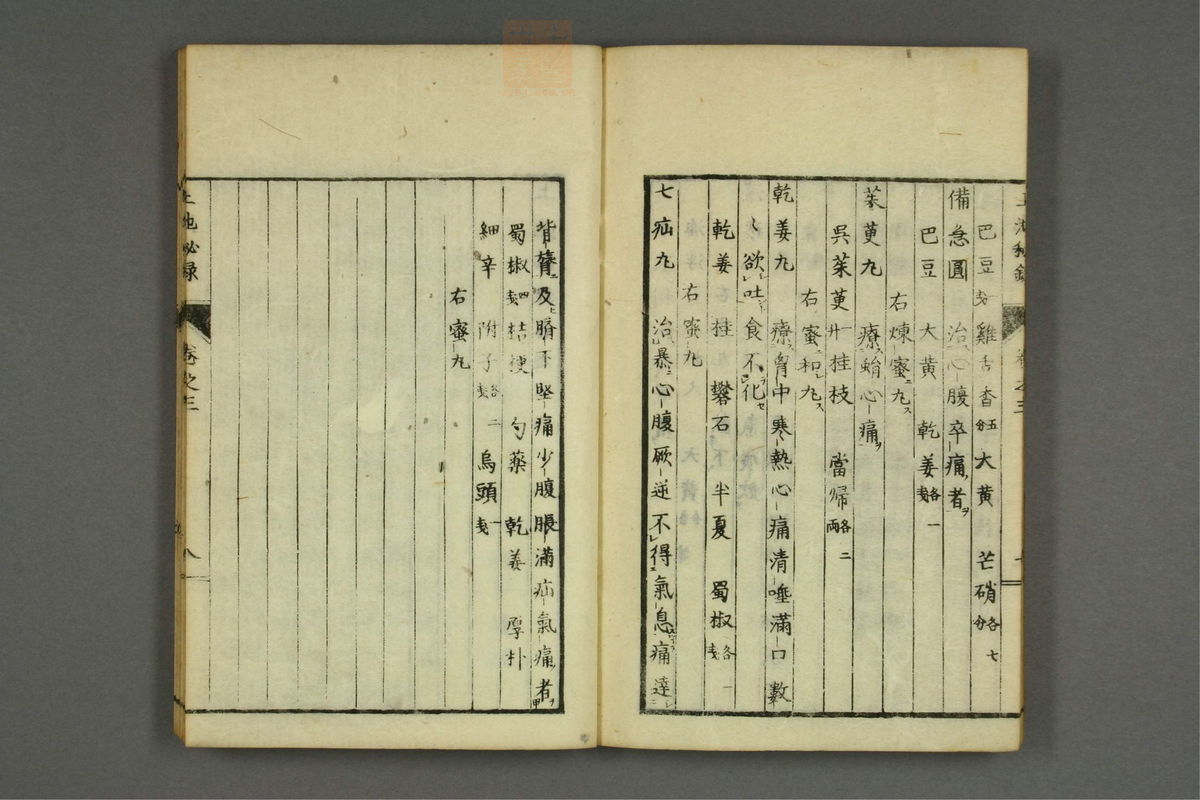 巴豆戔 雞舌香五分 大黃 芒硝各七分
備急圓 治心腹卒痛者
巴豆 大黃 乾姜各一戔
右煉蜜丸
茱萸丸 療蛕心痛
吳茱萸 桂枝 當歸各二兩
右蜜和丸
乾姜丸 療胷中寒熱心痛清唾滿口數
欲吐食不化
乾姜 桂 礬石 半夏 蜀椒各一戔
右蜜丸
七疝丸 治暴心腹厥逆不得氣息痛達
背膂及臍下堅痛少腹脹滿疝氣痛者
蜀椒四戔 桔梗 勺藥 乾姜 厚朴
細辛 附子各二戔 烏頭一戔
右蜜丸
上池秘録 卷之三
上池秘録 卷之三 八